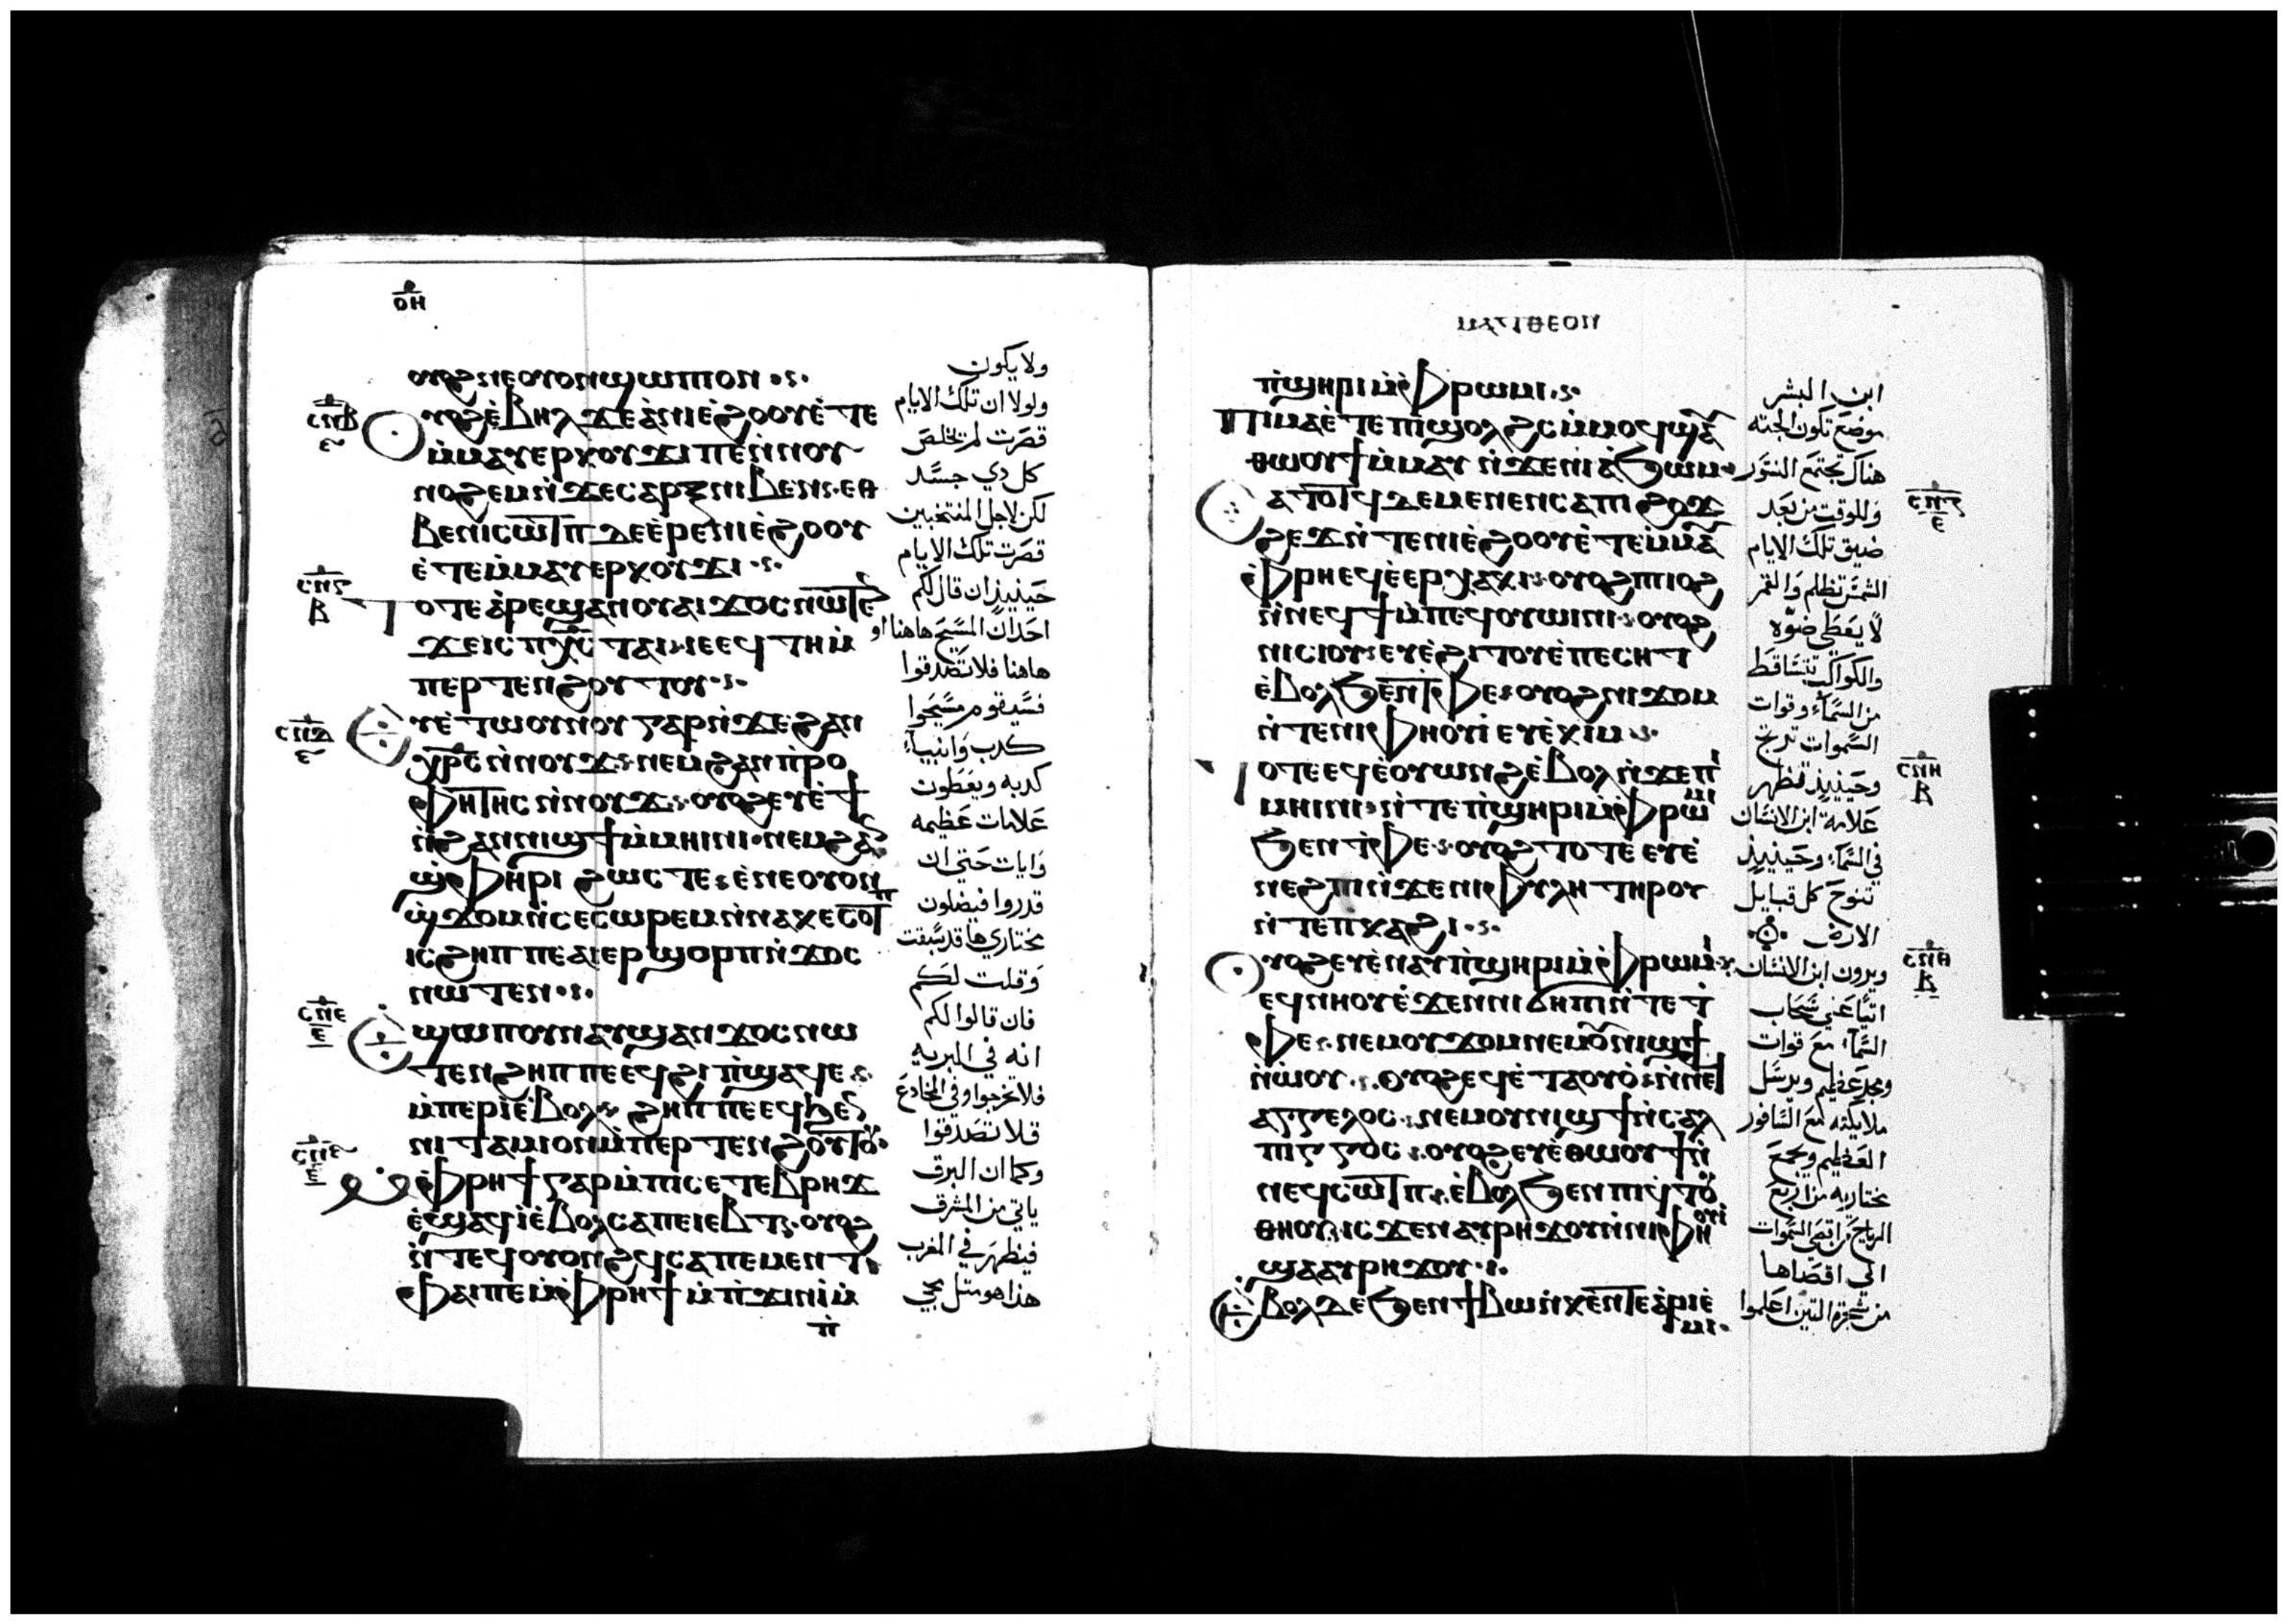 ⲟⲏ
ⲟⲩⲟϩ ⲛⲉ ⲟⲩⲟⲛ ϣⲱⲡⲓ ⲟⲛ
ⲟⲩⲟϩ ⲉ̀ⲃⲏⲗ ϫⲉ ⲁ̀ ⲛⲓⲉ̀ϩⲟⲟⲩ ⲉ̀ⲧⲉ
ⲙ̀ⲙⲁⲩ ⲉⲣⲕⲟⲩϫⲓ ⲡⲉ ⲛ̀ⲛⲟⲩ
ⲛⲟϩⲉⲙ ⲛ̀ϫⲉ ⲥⲁⲣⲝ ⲛⲓⲃⲉⲛ ⲉⲑ
ⲃⲉ ⲛⲓⲥⲱⲧⲡ ⲇⲉ ⲉ̀ⲣⲉ ⲛⲓⲉ̀ϩⲟⲟⲩ
ⲉ̀ⲧⲉⲙ̀ⲙⲁⲩ ⲉⲣⲕⲟⲩϫⲓ
ⲧⲟⲧⲉ ⲁ̀ⲣⲉϣⲁⲛ ⲟⲩⲁⲓ ϫⲟⲥ ⲛⲱⲧⲉⲛ
ϫⲉ ⲓⲥ ⲡⲭ̅ⲥ̅ ⲧⲁⲓ ⲓⲉ ⲉϥⲧⲏ ⲙ̀
ⲡⲉⲣⲧⲉⲛϩⲟⲩⲧⲟⲩ
ⲉⲩⲉ̀ⲧⲱⲟⲩⲛⲟⲩ ⲅⲁⲣ ⲛ̀ϫⲉ ϩⲁⲛ
ⲭⲣ̅ⲥ̅ ⲛ̀ⲛⲟⲩϫ ⲛⲉⲙ ϩⲁⲛⲡ̀ⲣⲟ
ⲫⲏⲧⲏⲥ ⲛ̀ⲛⲟⲩϫ ⲟⲩⲟϩ ⲉⲩⲉ̀ϯ
ⲛ̀ϩⲁⲛⲛⲓϣϯ ⲙ̀ⲙⲏⲓⲛⲓ ⲛⲉⲙ ϩⲁⲛ
ϣ̀ⲫⲏⲣⲓ ϩⲱⲥⲧⲉ ⲉ̀ⲛⲉ ⲟⲩⲟⲛ
ϣ̀ϫⲟⲙ ⲛ̀ⲥⲉⲥⲱⲣⲉⲙ ⲛ̀ⲛⲁⲕⲉⲥⲱⲧⲡ
ⲓⲥ ϩⲏⲡⲡⲉ ⲁⲓⲉⲣϣⲟⲣⲡ ⲛ̀ϫⲟⲥ
ⲛⲱⲧⲉⲛ
ⲉϣⲱⲡ ⲟⲩⲛ ⲁⲩϣⲁⲛϫⲟⲥ ⲛⲱ
ⲧⲉⲛ ϩⲏⲡⲡⲉ ⲉϥϩⲓ ⲡ̀ϣⲁϥⲉ
ⲙ̀ⲡⲉⲣⲓ̀ ⲉ̀ⲃⲟⲗ ϩⲏⲡⲡⲉ ⲉϥϧⲉⲛ
ⲛⲓⲧⲁⲙⲓⲟⲛ ⲙ̀ⲡⲉⲣⲧⲉⲛϩⲟⲩⲧⲟⲩ
ⲙ̀ⲫⲣⲏϯ ⲅⲁⲣ ⲙ̀ⲡⲓⲥⲉⲧⲉⲃⲣⲏϫ
ⲉ̀ϣⲁϥⲓ̀ ⲉ̀ⲃⲟⲗ ⲥⲁ ⲡⲉⲓⲉⲃⲧ ⲟⲩⲟϩ
ⲛ̀ⲧⲉϥⲟⲩⲟⲛϩϥ ⲥⲁ ⲡⲉⲙⲉⲛⲧ
ⲫⲁⲓ ⲡⲉ ⲙ̀ⲫⲣⲏϯ ⲙ̀ⲡ̀ϫⲓⲛⲓ̀ ⲙ̀
ⲡ̀
ⲥⲡⲃ
ⲥⲡⲇ
ⲥⲡⲉ
ولا يكون
ولولا ان تلك الايام
قصرت لم يخلص
كل دي جسد
لكن لاجل المنتخبين
قصرت تلك الايام
حينيذ ان قال لكم
احد ان المسيح هاهنا او
هاهنا فلا تصدقوا
فسيقوم مسيحوا
كدب وانبياء
كدبه ويعطون
علامات عظيمه
وايات حتى ان
قدروا فيضلون
مختاري ها قد سبقت
وقلت لكم
فان قالوا لكم
انه في البريه
فلا تخرجوا وفي المخادع
فلا تصدقوا
وكما ان البرق
ياتي من المشرق
فيظهر في المغرب
هذا هو مثل مجي
ⲙⲁⲧⲑⲉⲟⲛ
ⲡ̀ϣⲏⲣⲓ ⲙ̀ⲫⲣⲱⲙⲓ
ⲡⲓⲙⲁ ⲉ̀ⲧⲉ ⲡⲓϣⲟⲗϩⲥ ⲙ̀ⲙⲟϥ ϣⲁⲩ
ⲑⲱⲟⲩϯ ⲙ̀ⲙⲁⲩ ⲛ̀ϫⲉ ⲛⲓⲁ̀ϧⲱⲙ
ⲥⲁⲧⲟⲧϥ ⲇⲉ ⲙⲉⲛⲉⲛⲥⲁ ⲡⲓϩⲟϫ
ϩⲉϫ ⲛ̀ⲧⲉ ⲛⲓⲉ̀ϩⲟⲟⲩ ⲉ̀ⲧⲉⲙ̀ⲙⲁⲩ
ⲫⲣⲏ ⲉϥⲉ̀ⲉⲣⲭⲁⲕⲓ ⲟⲩⲟϩ ⲡⲓⲓⲟϩ
ⲛ̀ⲛⲉϥϯ ⲙ̀ⲡⲉϥⲟⲩⲱⲓⲛⲓ ⲟⲩⲟϩ
ⲛⲓⲥⲓⲟⲩ ⲉⲩⲉ̀ϩⲓⲧⲟⲩ ⲉ̀ⲡⲉⲥⲏⲧ
ⲉ̀ⲃⲟⲗ ϧⲉⲛ ⲧ̀ⲫⲉ ⲟⲩⲟϩ ⲛⲓϫⲟⲙ
ⲛ̀ⲧⲉ ⲛⲓⲫⲏⲟⲩⲓ̀ ⲉⲩⲉ̀ⲕⲓⲙ
ⲧⲟⲧⲉ ⲉϥⲉ̀ⲟⲩⲱⲛϩ ⲉ̀ⲃⲟⲗ ⲛ̀ϫⲉ ⲡⲓ
ⲙⲏⲓⲛⲓ ⲛ̀ⲧⲉ ⲡ̀ϣⲏⲣⲓ ⲙ̀ⲫⲣⲱⲙⲓ
ϧⲉⲛ ⲧ̀ⲫⲉ ⲟⲩⲟϩ ⲧⲟⲧⲉ ⲉⲩⲉ̀
ⲛⲉϩⲡⲓ ⲛ̀ϫⲉ ⲛⲓⲫⲩⲗⲏ ⲧⲏⲣⲟⲩ
ⲛ̀ⲧⲉ ⲡⲕⲁϩⲓ
ⲟⲩⲟϩ ⲉⲩⲉ̀ⲛⲁⲩ ⲡ̀ϣⲏⲣⲓ ⲙ̀ⲫⲣⲱⲙⲓ
ⲉϥⲛⲏⲟⲩ ⲉ̀ϫⲉⲛ ⲛⲓϭⲏⲡⲓ ⲛ̀ⲧⲉ ⲧ̀
ⲫⲉ ⲛⲉⲙ ⲟⲩϫⲟⲙ ⲛⲉⲙ ⲟⲩⲛⲓϣϯ
ⲛ̀ⲱ̀ⲟⲩ ⲟⲩⲟϩ ⲉϥⲉ̀ⲧⲁⲟⲩⲟ̀ ⲛ̀ⲛⲉϥ
ⲁⲅⲅⲉⲗⲟⲥ ⲛⲉⲙ ⲟⲩⲛⲓϣϯ ⲛ̀ⲥⲁⲗ
ⲡⲓⲅⲅⲟⲥ ⲟⲩⲟϩ ⲉⲩⲉ̀ⲑⲱⲟⲩϯ ⲛ̀
ⲛⲉϥⲥⲱⲧⲡ ⲉ̀ⲃⲟⲗ ϧⲉⲛ ⲡⲓϥⲧⲟⲩ
ⲑⲏⲟⲩ ⲓⲥϫⲉⲛ ⲁⲩⲣⲏϫⲟⲩ ⲛ̀ⲛⲓⲫⲏⲟⲩⲓ
ϣⲁ ⲁⲩⲣⲏϫⲟⲩ
ⲉ̀ⲃⲟⲗ ⲇⲉ ϧⲉⲛ ϯⲃⲱ ⲛ̀ⲕⲉⲛⲧⲉ ⲁ̀ⲣⲓⲉ̀
ⲙⲓ
ⲥⲡⲏ
ⲥⲡⲑ
ابن البشر
موضع تكون الجثه
هناك تجتمع النسور
وللوقت من بعد
ضيق تلك الايام
الشمس تظلم والقمر
لا يعطي ضوه
والكواكب تتساقط
من السماء وقوات
السموات ترتج
وحينيذ تظهر
علامة ابن الانسان
في السماء وحينيذ
تنوح كل قبايل
الارض
ويرون ابن الانسان
اتيا على سحاب
السماء مع قوات
ومجد عظيم ويرسل
ملايكته مع السافور
العظيم ويجمع
مختاريه من اربع
الرياح من اقصى السموات
الى اقصاها
من شجرة التين اعلموا